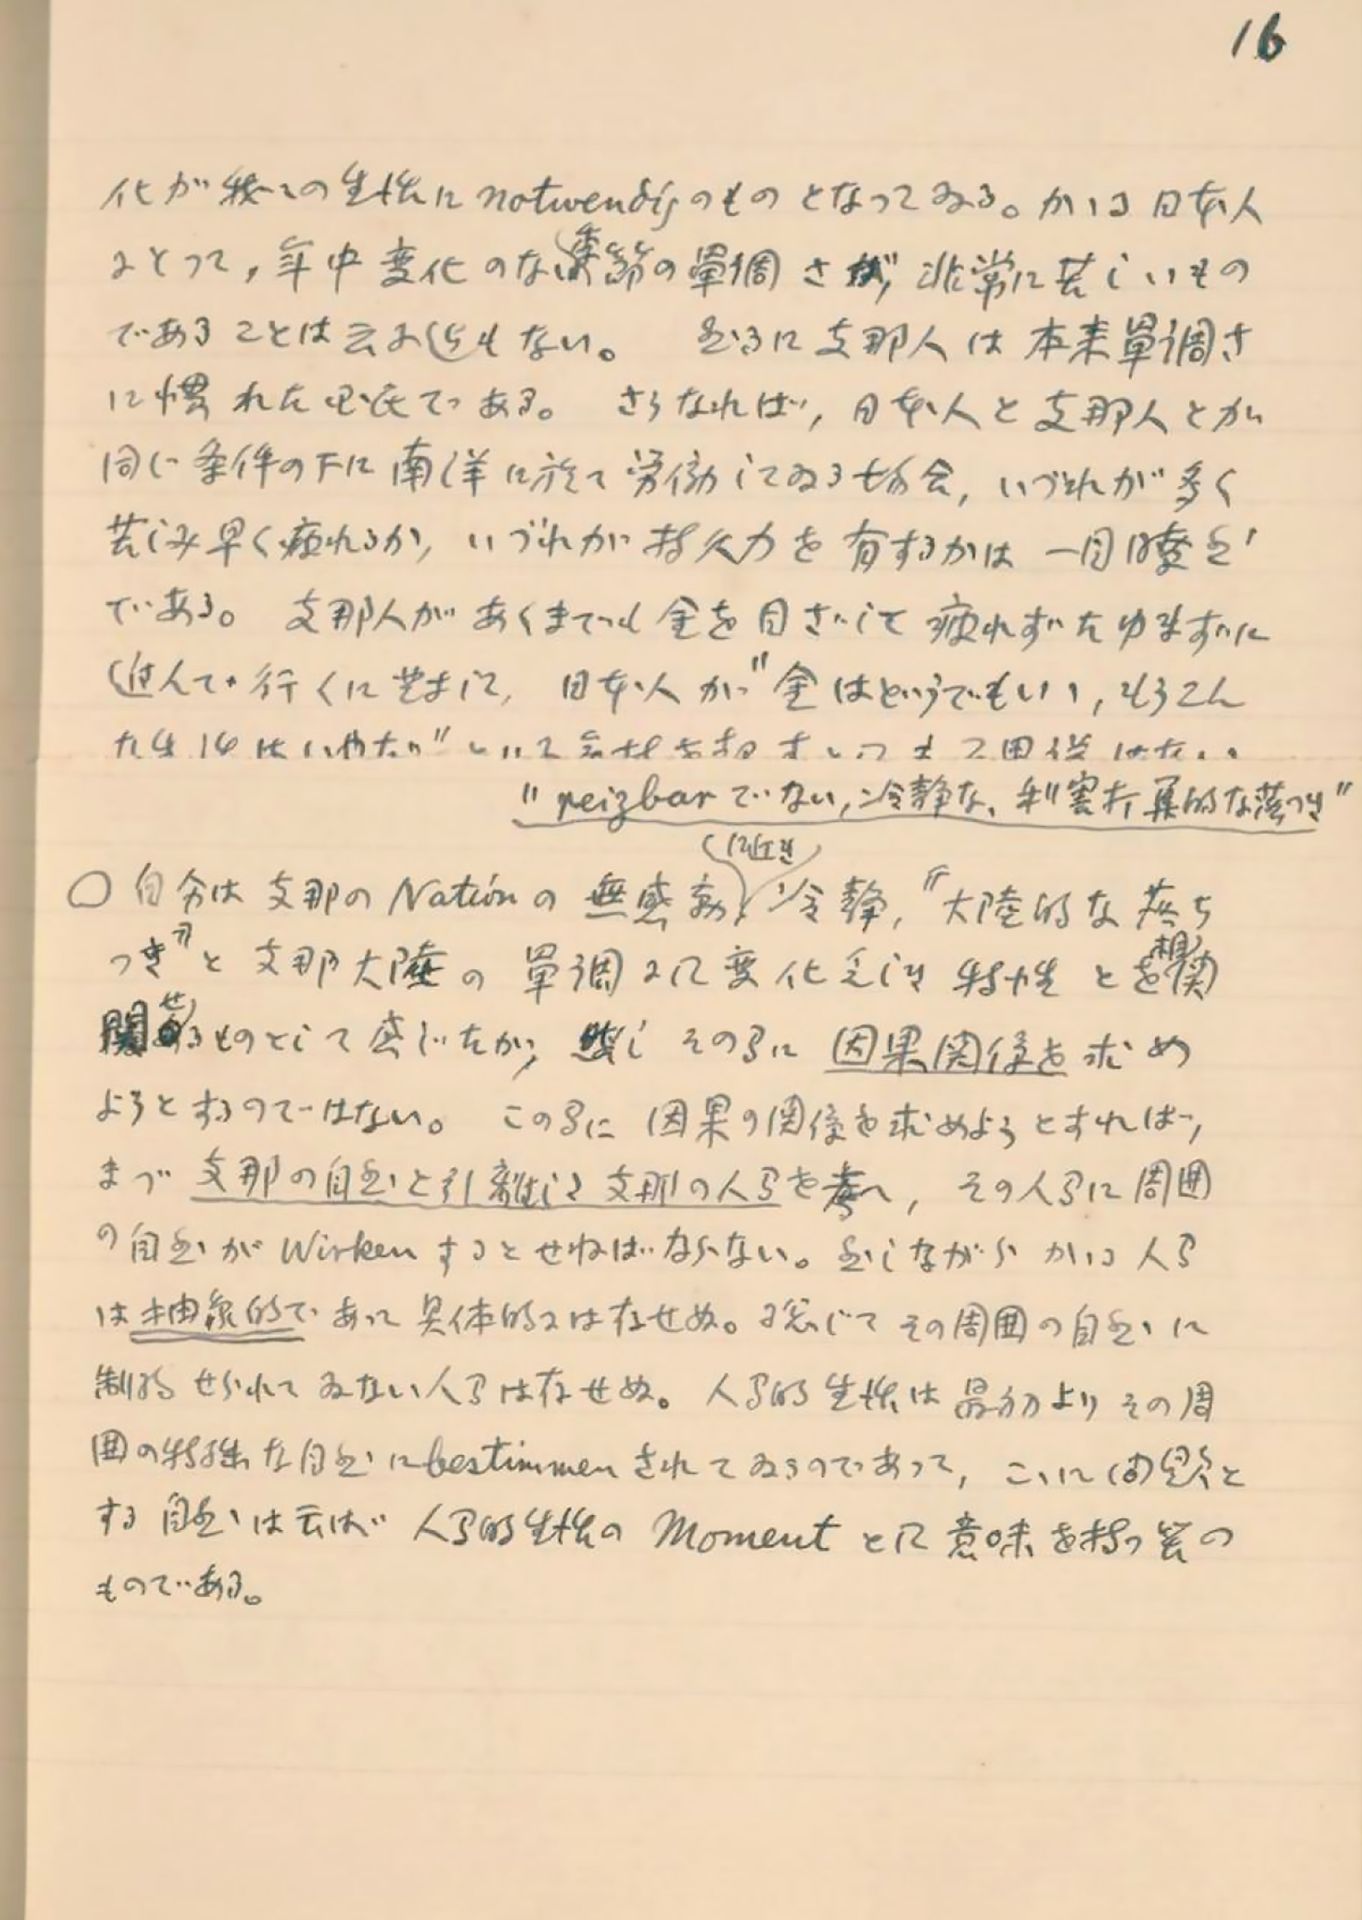 16
化が我々の生活に notwendig のものとなってゐる。かゝる日本人
にとって、年中変化のない季節の單調さが、非常に苦しいもの
であることは云ふ迄もない。 然るに支那人は本来單調さ
に慣れた國民である。 さうなれば、日本人と支那人とが
同じ条件の下に南洋に於て労働してゐる場合、いづれが多く
苦しみ早く疲れるか、いづれが持久力を有するかは一目瞭然
である。 支那人があくまでも金を目ざして疲れずたゆまずに
進んで行くに對して、日本人が"金はどうでもいゝ、もうこん
な生活はいやだ"といって
"reizbarでない、冷静な、利害打算的な落つき"
に近き
○自分は支那の Nation の無感動、冷静、"大陸的な落ち
つき"と支那大陸の單調にして変化乏しき特性とを相関
関せるものとして感じたが、 その間に因果関係を求め
ようとするのではない。 この間に因果の関係を求めようとすれば、
まづ支那の自然と引離して支那の人間を考へ、その人間に周囲
の自然が Wirken するとせねばならない。然しながらかゝる人間
は抽象的であって具体的には存せぬ。総じてその周囲の自然に
制約せられてゐない人間は存せぬ。人間的生活は最初よりその周
囲の特殊な自然に bestimmen されてゐるのであって、こゝに問題と
する自然は云はゞ人間的生活の Moment として意味を持つ筈の
ものである。